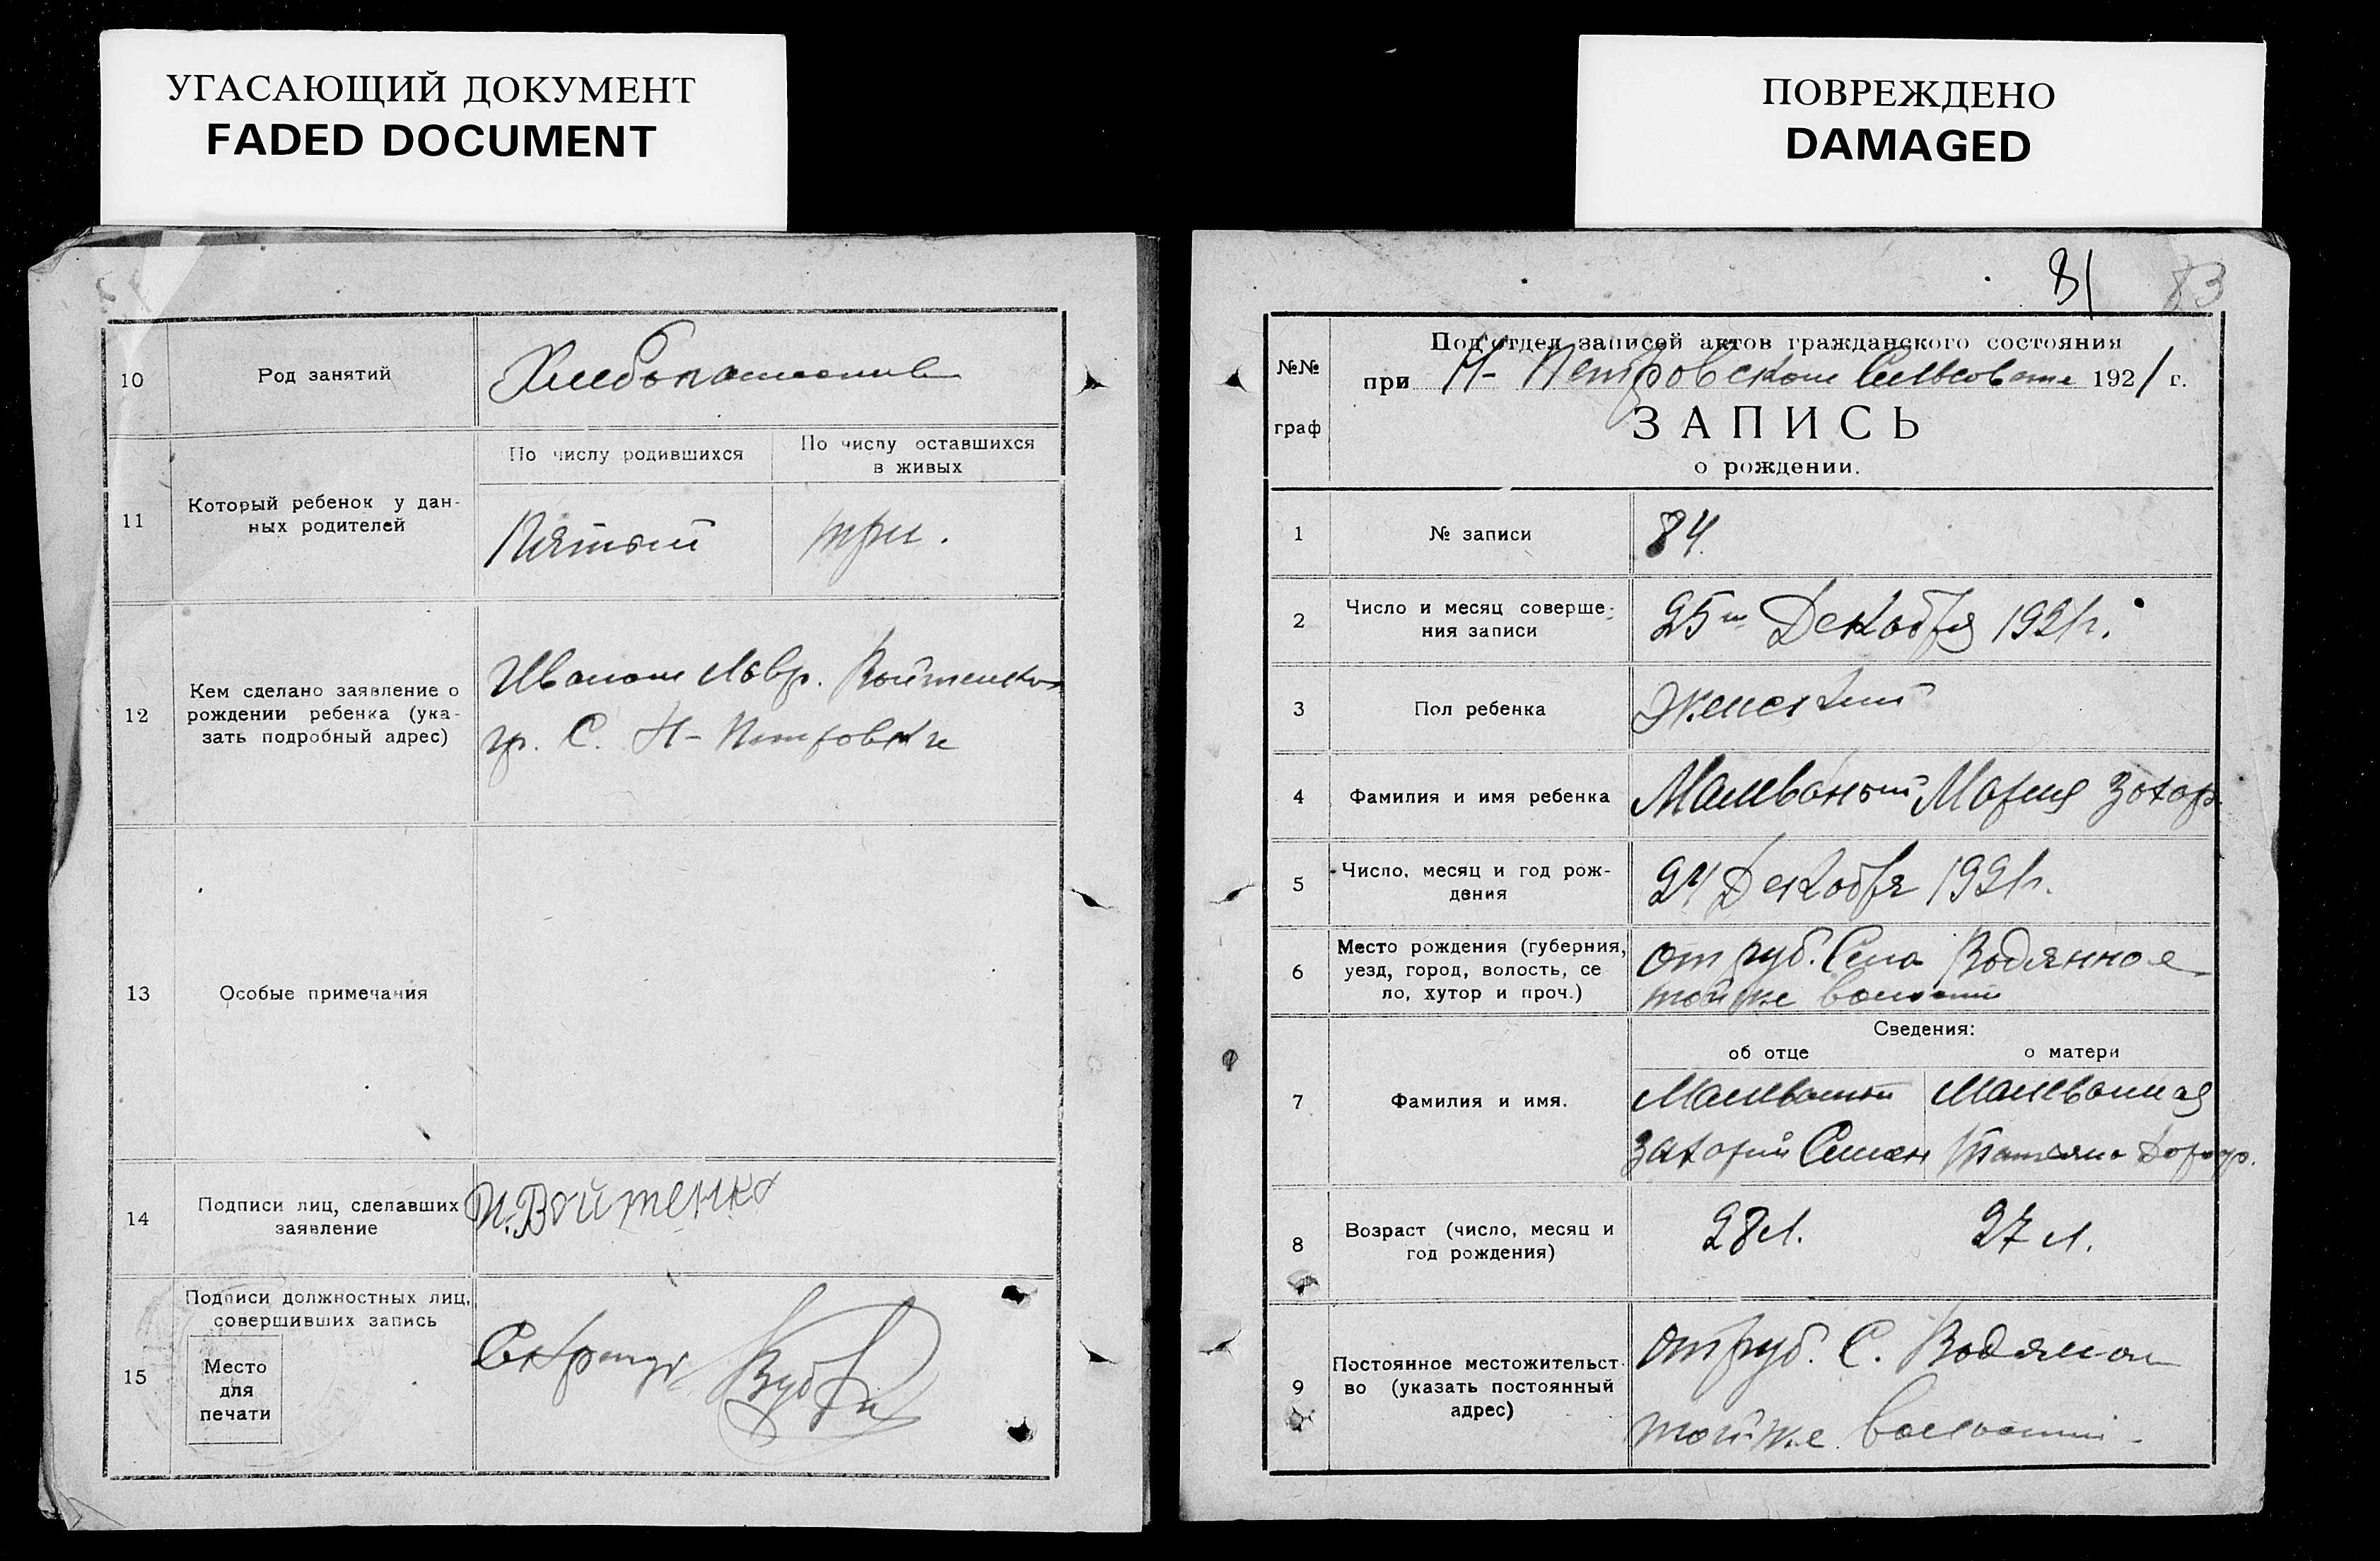 УГАСАЮЩИЙ ДОКУМЕНТ
FADED DOCUMENT
ПОВРЕЖДЕНО
DAMAGED
10
Род занятий
Хлебопашение
11
Который ребенок у дан-
ных родителей
По числу родившихся
По числу оставшихся
в живых
Пятый
три.
12
Кем сделано заявление о
рождении ребенка (ука-
зать подробный адрес)
Иваном Лавр. Войтенком
гр. С. Н-Петровки
13
Особые примечания
14
Подписи лиц, сделавших
заявление
И. Войтенко
15
Подписи должностных лиц,
совершивших запись
Место
для
печати
Секретарь
81 83
№№
граф
Под'отдел записей актов гражданского состояния
при Н-Петровском Сельсовете 1921 г.
ЗАПИСЬ
о рождении.
1
№ записи
84.
2
Число и месяц соверше-
ния записи
25го Декабря 1921г.
3
Пол ребенка
Женский
4
Фамилия и имя ребенка
Малеваный Мария Захар.
5
Число, месяц и год рож-
дения
24 Декабря 1921г.
6
Место рождения (губерния,
уезд, город, волость, се
ло, хутор и проч.)
отруб. Села Водянное
той же волости
Сведения:
об отце
о матери
7
Фамилия и имя.
Малеваный
Захарий Семен
Малеванная
Татьяна
8
Возраст (число, месяц и
год рождения)
28 л.
27 л.
9
Постоянное местожительст-
во (указать постоянный
адрес)
отруб. С. Водяном
той-же волости-